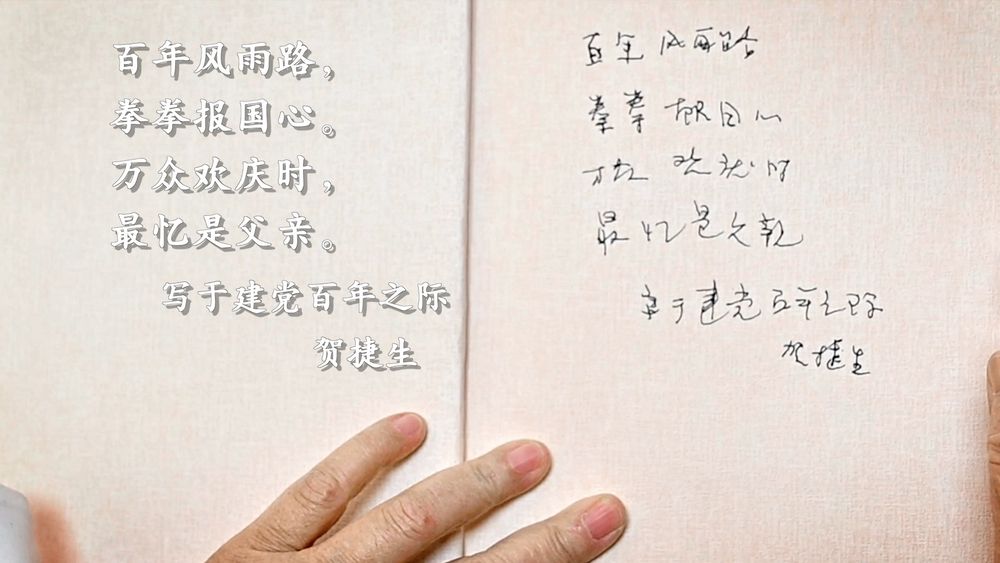 百年风雨路，
拳拳报国心。
万众欢庆时，
最忆是父亲。
写于建党百年之际
贺捷生
百年风雨路
拳拳报国心
万众欢庆时
最忆是父亲
写于建党百年之际
贺捷生